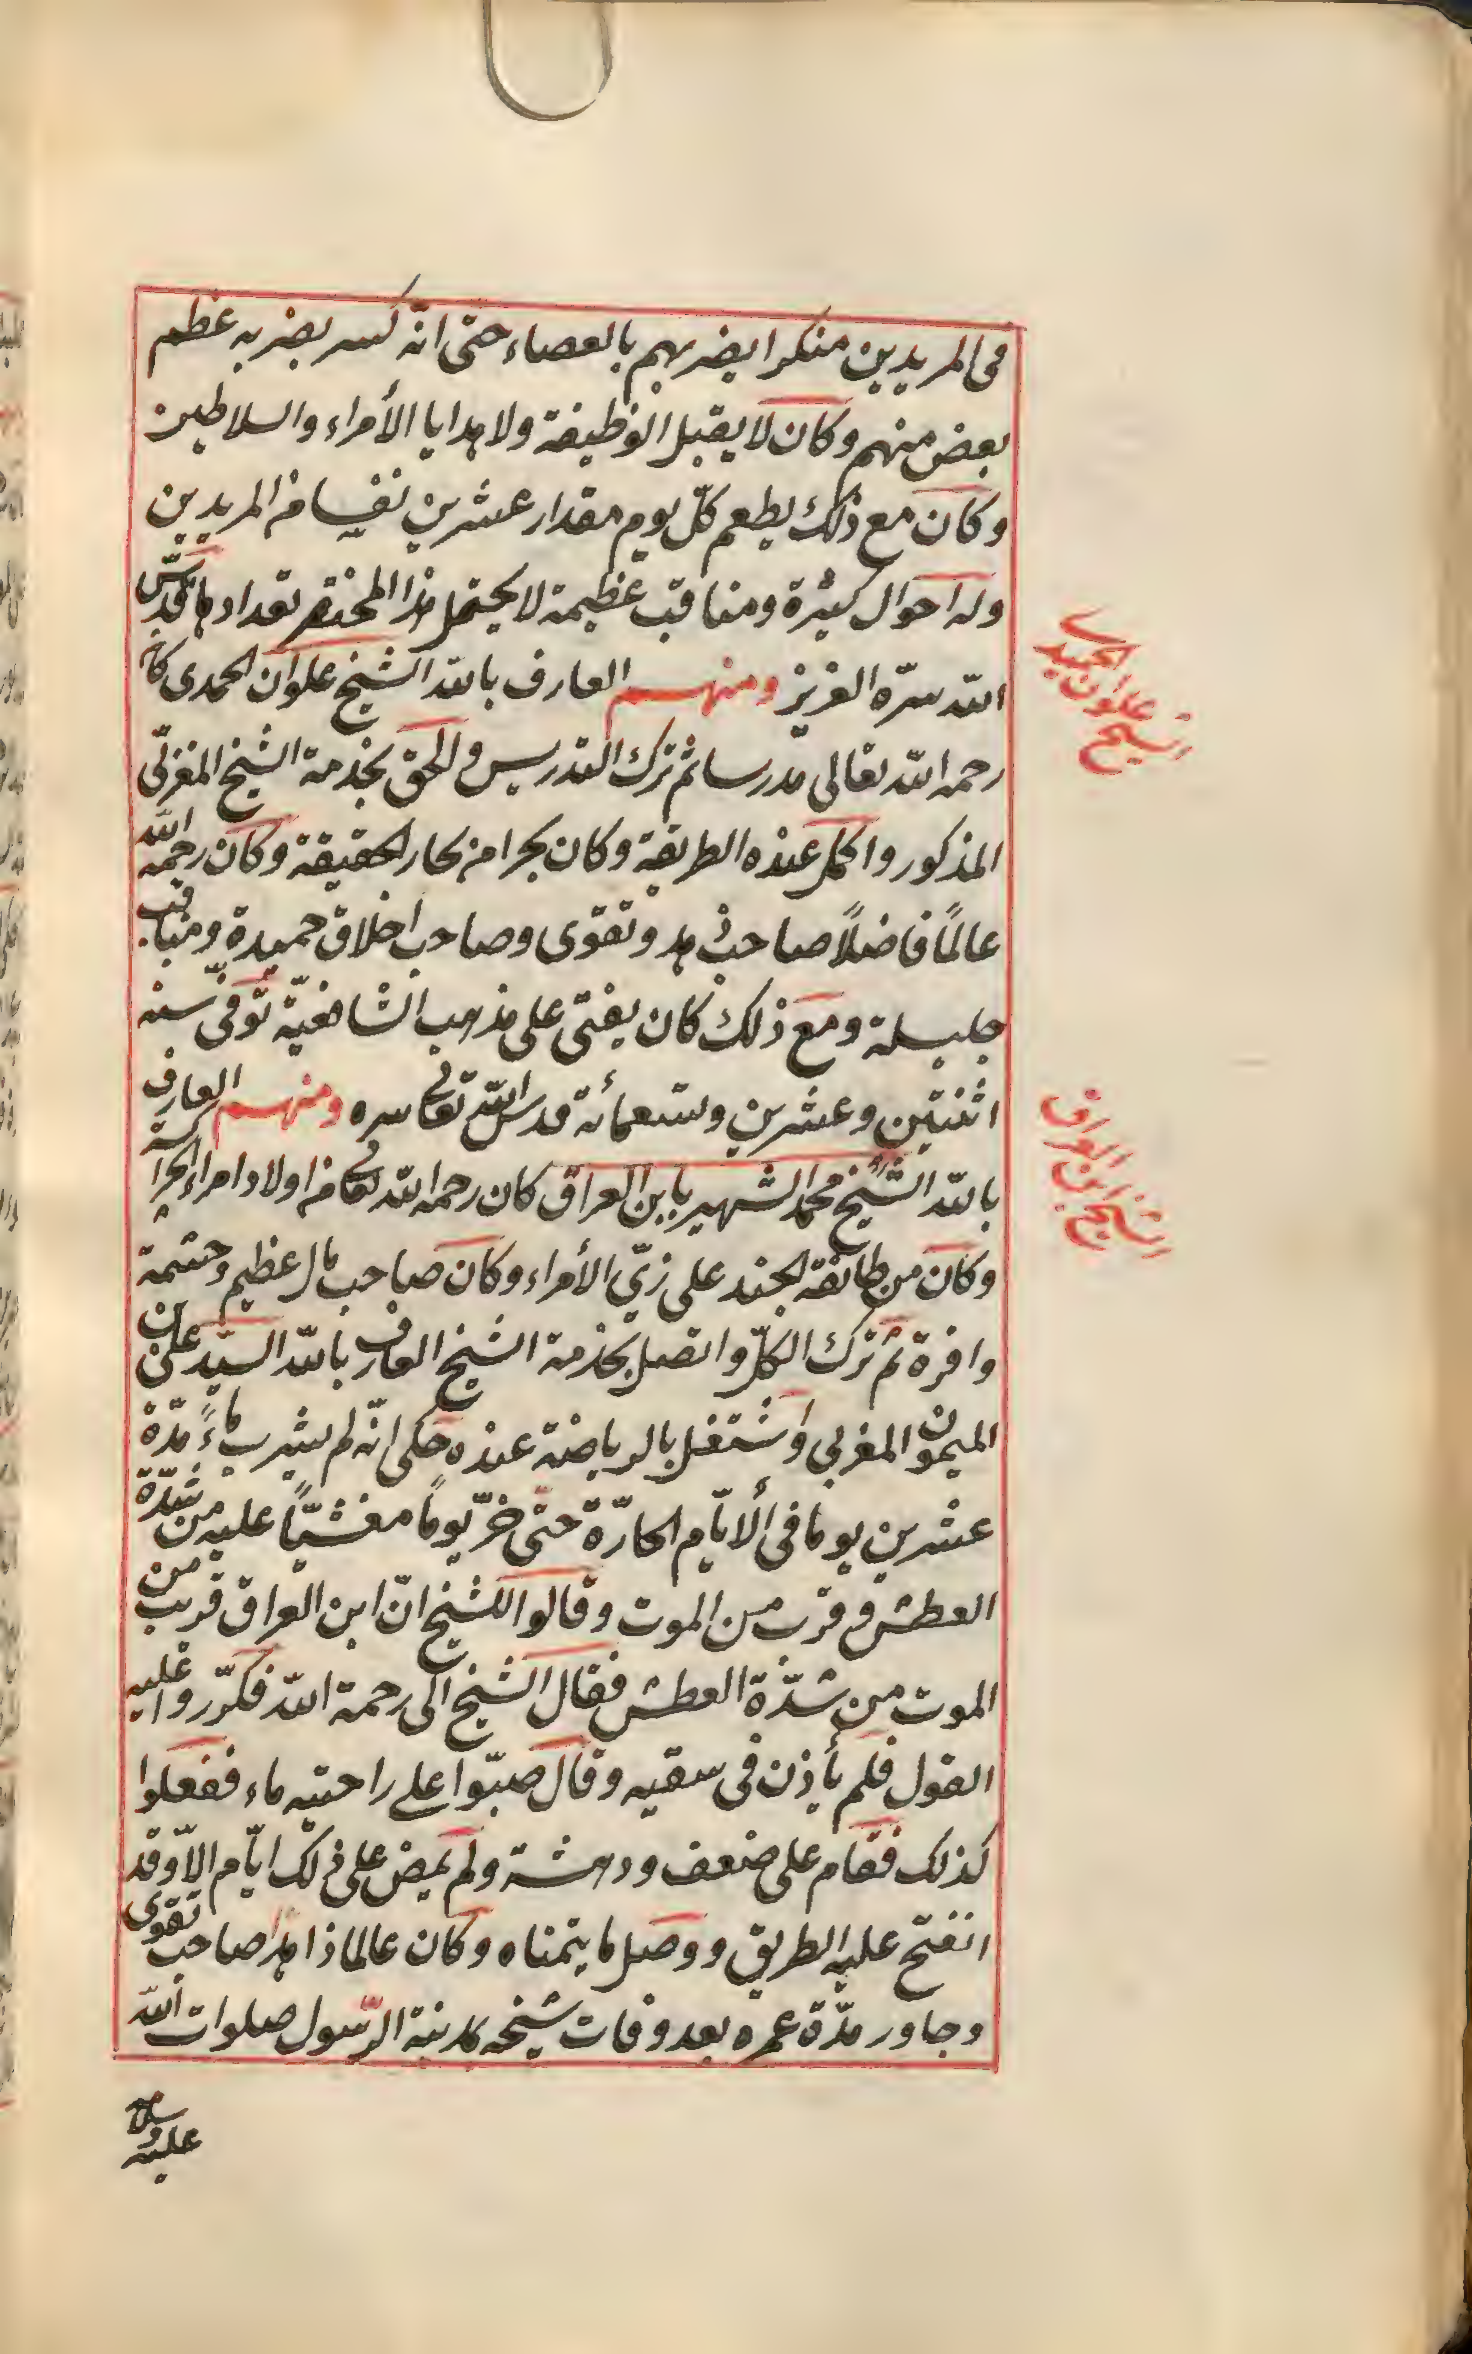 فى المريدين منكرا يضربهم بالعصاء حتى انّه كسر بضربه عظم
بعض منهم وكان لا يقبل الوظيفة ولا هدايا الأمراء والسلاطين
وكان مع ذلك يطعم كلّ يوم مقدار عشرين نفسا من المريدين
وله احوال كثيرة ومناقب عظيمة لا يحتمل هذا المختصر تعدادها قدّس
الله سرّه العزيز ومنهم العارف بالله الشيخ علوان الحمدى كان
رحمه الله تعالى مدرسا ثم ترك التدريس والحق بخدمة الشيخ المغربى
المذكور واكمل عنده الطريقة وكان بحرا من بحار الحقيقة وكان رحمه الله
عالمًا فاضلًا صاحب زهد وتقوى وصاحب اخلاق حميدة ومناقب
جليلة ومع ذلك كان يفتى على مذهب الشافعيّة توفّى سنه
اثنتين وعشرين وتسعمائة قدس الله تعالى سره ومنهم العارف
بالله الشيخ محمد الشهير بابن العراق كان رحمه الله تعالى من اولاد امراء الجراكسة
وكان من طائفة الجند على زىّ الأمراء وكان صاحب مال عظيم وحشمة
وافرة ثم ترك الكلّ واتصل بخدمة الشيخ العارف بالله السيّد على بن
الميمون المغربى واشتغل بالرياضة عنده حكى انّه لم يشرب ماءً مدّة
عشرين يوما فى الايّام الحارّة حتى خرّ يومًا مغشيّا عليه من شدّة
العطش وقرب من الموت وقالوا للشيخ انّ ابن العراق قريب من
الموت من شدّة العطش فقال الشيخ الى رحمة الله فكرّروا عليه
القول فلم يأذن فى سقيه وقال صبّوا على راحتيه ماء ففعلوا
كذلك فقام على ضعف ودهشة ولم يمض على ذلك ايّام الّا وقد
انفتح عليه الطريق ووصل ما يتمناه وكان عالما زاهدا صاحب تقوى
وجاور مدّة عمره بعد وفات شيخه بمدينة الرّسول صلوات الله
عليه وسلامه
الشيخ علوان الحميدى
الشيخ ابن العراق